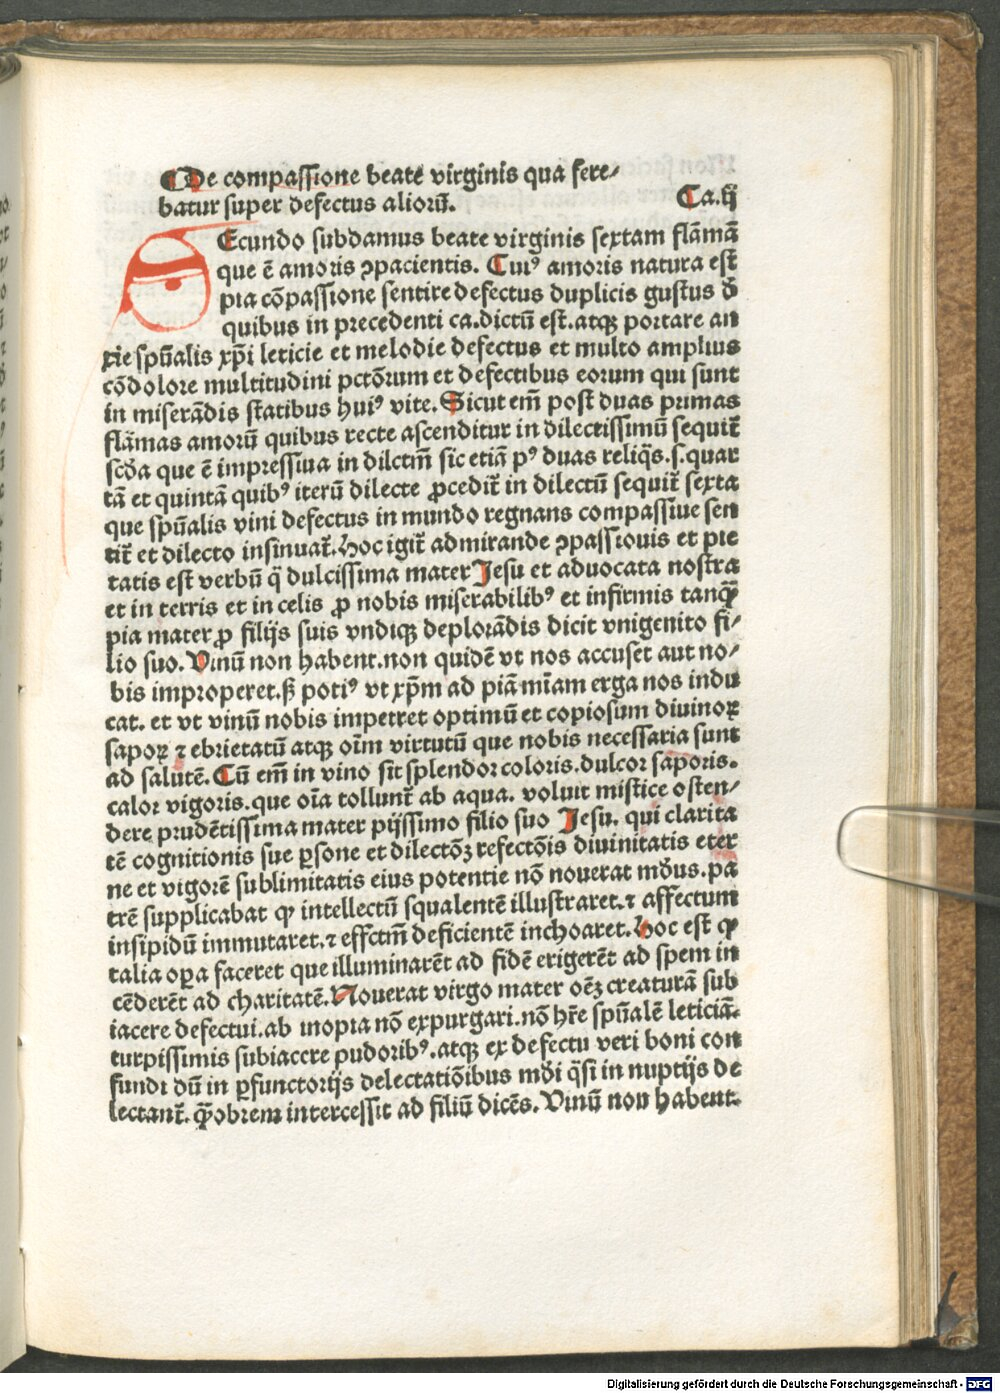 De compassione beate virginis qua fere/
batur super defectus alioru̅. Ca.ij
SEcundo subdamus beate virginis sextam fla̅ma̅
que e̅ amoris ꝯpacientis. Cuiꝰ amoris natura est
pia co̅passione sentire defectus duplicis gustus d̅
quibus in precedenti ca.dictu̅ est.atqꝫ portare an
xie spu̅alis xp̅i leticie et melodie defectus et multo amplius
co̅dolore multitudini pcto̅rum et defectibus eorum qui sunt
in misera̅dis statibus huiꝰ vite. Sicut em̅ post duas primas
fla̅mas amoru̅ quibus recte ascenditur in dilectissimu̅ sequit̅
scd̅a que e̅ impressiua in dilctm̅ sic etia̅ pꝰ duas reliq̅s.s.quar
ta̅ et quinta̅ quibꝰ iteru̅ dilecte ꝓcedit̅ in dilectu̅ sequit̅ sexta
que spu̅alis vini defectus in mundo regnans compassiue sen
tit̅ et dilecto insinuat̅. Hoc igit̅ admirande ꝯpassionis et pie
tatis est verbu̅ q̅ dulcissima mater Jesu et aduocata nostra
et in terris et in celis ꝓ nobis miserabilibꝰ et infirmis tanqꝫ̅
pia mater ꝓ filijs suis vndiqꝫ deplora̅dis dicit vnigenito fi/
lio suo. Vinu̅ non habent.non quide̅ vt nos accuset aut no/
bis improperet.sꝫ potiꝰ vt xp̅m ad pia̅ mi̅am erga nos indu
cat. et vt vinu̅ nobis impetret optimu̅ et copiosum diuinoꝝ
sapoꝝ ⁊ ebrietatu̅ atqꝫ oi̅m virtutu̅ que nobis necessaria sunt
ad salute̅. Cu̅ em̅ in vino sit splendor coloris.dulcor saporis.
calor vigoris.que oi̅a tollunt̅ ab aqua. voluit mistice osten/
dere prude̅tissima mater pijssimo filio suo Jesu. qui clarita
te̅ cognitionis sue ꝑsone et dilecto̅ꝫ refecto̅is diuinitatis eter
ne et vigore̅ sublimitatis eius potentie no̅ nouerat md̅us.pa
tre̅ supplicabat qꝙ intellectu̅ squalente̅ illustraret.⁊ affectum
insipidu̅ immutaret.⁊ effctm̅ deficiente̅ inchoaret. Hoc est ꝙ
talia oꝑa faceret que illuminare̅t ad fide̅ erigere̅t ad spem in
ce̅dere̅t ad charitate̅. Nouerat virgo mater oe̅ꝫ creatura̅ sub
iacere defectui.ab inopia no̅ expurgari.no̅ hr̅e spu̅ale̅ leticia̅.
turpissimis subiacere pudoribꝰ.atqꝫ ex defectu veri boni con
fundi du̅ in ꝑfunctorijs delectatio̅ibus md̅i q̅si in nuptijs de
lectant̅. qꝫ̅obrem intercessit ad filiu̅ dice̅s. Vinu̅ non habent.
Digitalisierung gefördert durch die Deutsche Forschungsgemeinschaft - DFG